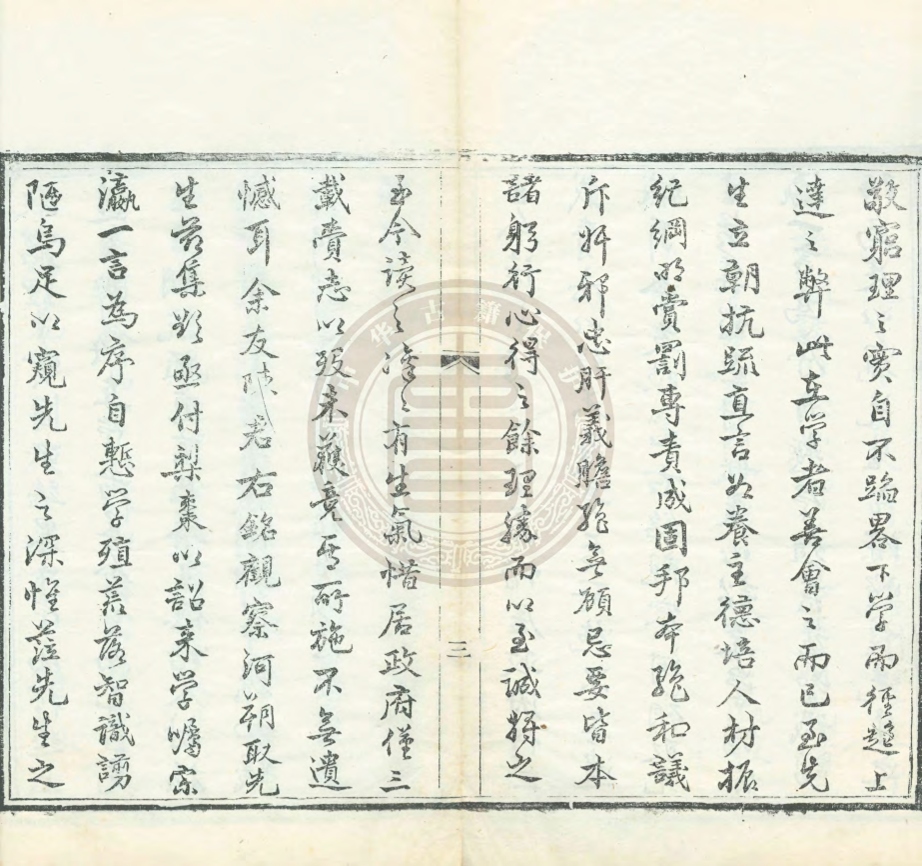 敬窮理之實自不蹈畧下學而徑趨上
達之弊此在學者善會之而已至先
生立朝抗疏直言如養主德培人材振
紀綱明賞罰專責成固邦本絶和議
斥奸邪忠肝義膽絶無顧忌要皆本
諸躬行心得之餘理緣而以至誠將之
三
至今讀之凜凜有生氣惜居政府僅三
載賫志以歿未獲竟其所施不無遺
憾耳余友陸君右銘觀察河朔取先
生著集將亟付梨棗以詔來學囑宗
瀛一言為序自慙學殖荒落智識譾
陋烏足以窺先生之深惟蒞先生之